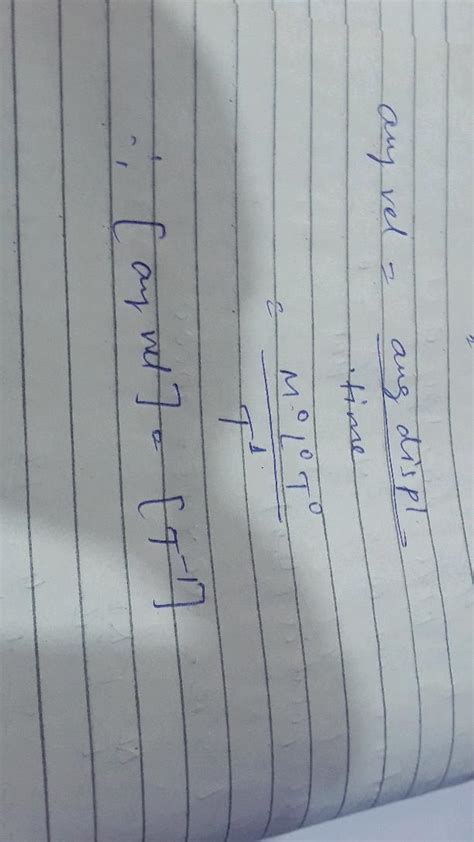 ang vel = ang displ
time
= M⁰L⁰T⁰
T¹
∴ [ang vel] = [T⁻¹]